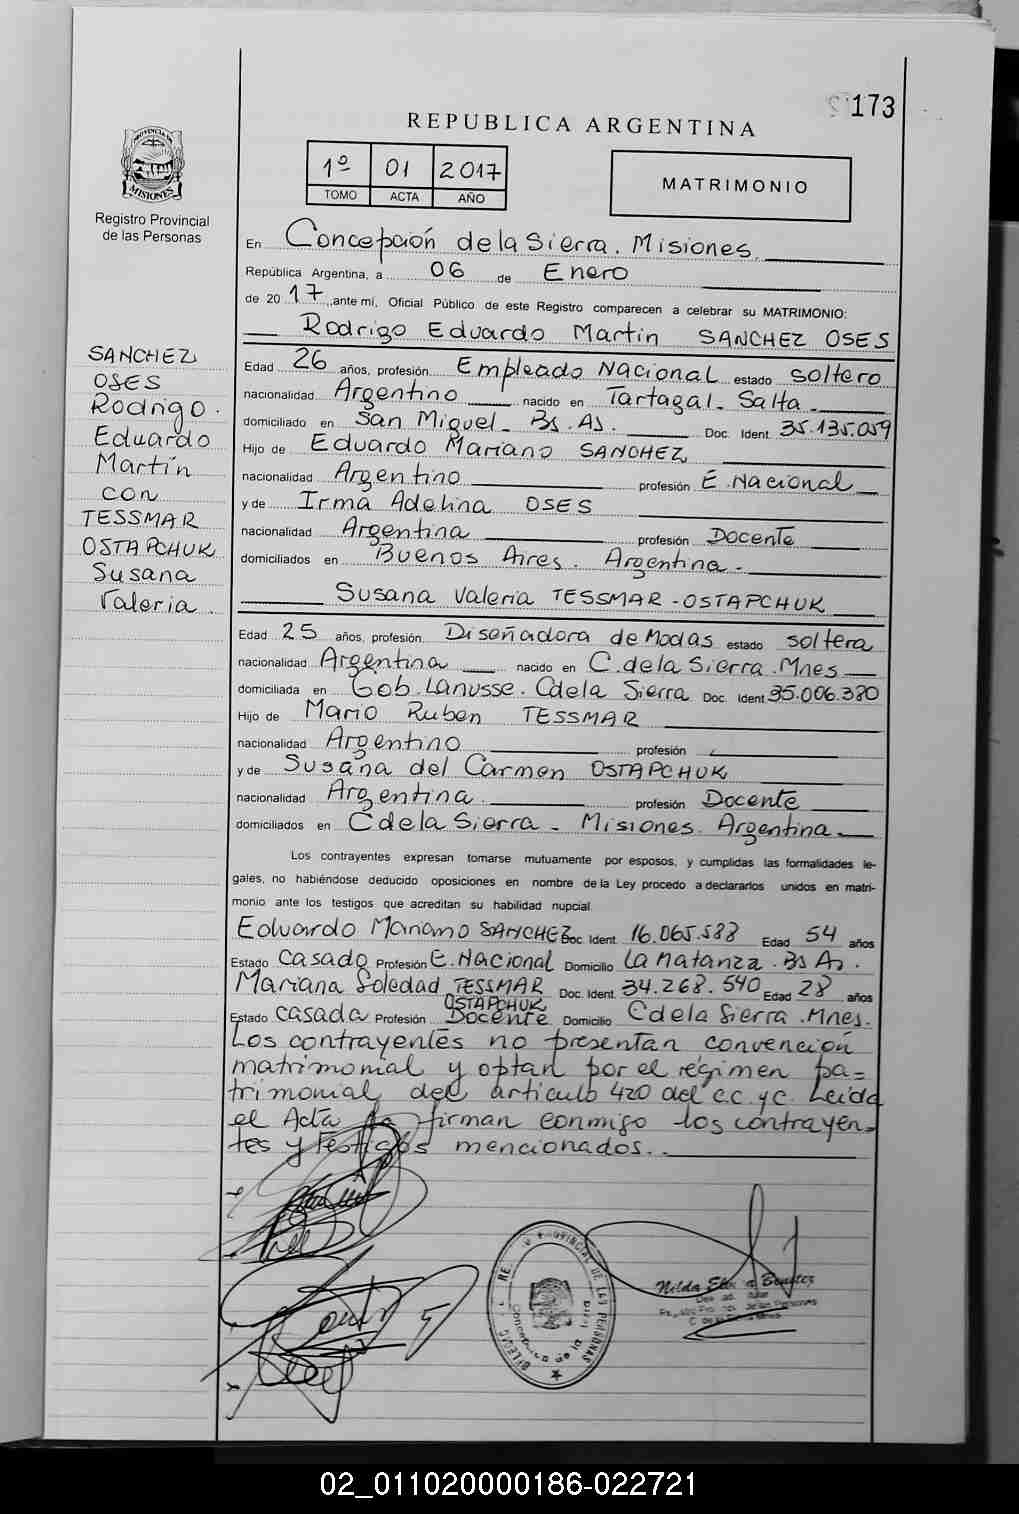 173
REPUBLICA ARGENTINA
1º 01 2017
TOMO ACTA AÑO
MATRIMONIO
PROVINCIA DE MISIONES
Registro Provincial
de las Personas
En Concepción de la Sierra. Misiones.
República Argentina, a 06 de Enero
de 20 17 ante mí, Oficial Público de este Registro comparecen a celebrar su MATRIMONIO:
Rodrigo Eduardo Martin SANCHEZ OSES
SANCHEZ
OSES
Rodrigo.
Eduardo
Martín
con
TESSMAR
OSTAPCHUK
Susana
Valeria.
Edad 26 años, profesión Empleado Nacional estado soltero
nacionalidad Argentino nacido en Tartagal - Salta.
domiciliado en San Miguel - Bs. As. Doc. Ident. 35.135.059
Hijo de Eduardo Mariano SANCHEZ
nacionalidad Argentino profesión E. Nacional
y de Irma Adelina OSES
nacionalidad Argentina profesión Docente
domiciliados en Buenos Aires. Argentina -
Susana Valeria TESSMAR - OSTAPCHUK
Edad 25 años, profesión Diseñadora de Modas estado soltera
nacionalidad Argentina nacido en C. de la Sierra. Mnes
domiciliada en Gob. Lanusse. C de la Sierra Doc. Ident 35.006.380
Hijo de Mario Ruben TESSMAR
nacionalidad Argentino profesión
y de Susana del Carmen OSTAPCHUK
nacionalidad Argentina. profesión Docente
domiciliados en C de la Sierra - Misiones. Argentina.
Los contrayentes expresan tomarse mutuamente por esposos, y cumplidas las formalidades le-
gales, no habiéndose deducido oposiciones en nombre de la Ley procedo a declararlos unidos en matri-
monio ante los testigos que acreditan su habilidad nupcial
Eduardo Mariano SANCHEZ Doc. Ident. 16.065.588 Edad 54 años
Estado Casado Profesión E. Nacional Domicilio La Matanza. Bs As.
Mariana Soledad TESSMAR OSTAPCHUK Doc. Ident. 34.268.540 Edad 28 años
Estado Casada Profesión Docente Domicilio C de la Sierra. Mnes.
Los contrayentes no presentan convención
matrimonial y optan por el régimen pa=
trimonial del artículo 420 del C.C. y C. Leída
el Acta la firman conmigo los contrayen-
tes y testigos mencionados.
PROVINCIAL DE LAS PERSONAS
Concepción de la
Nilda Benitez
02_011020000186-022721